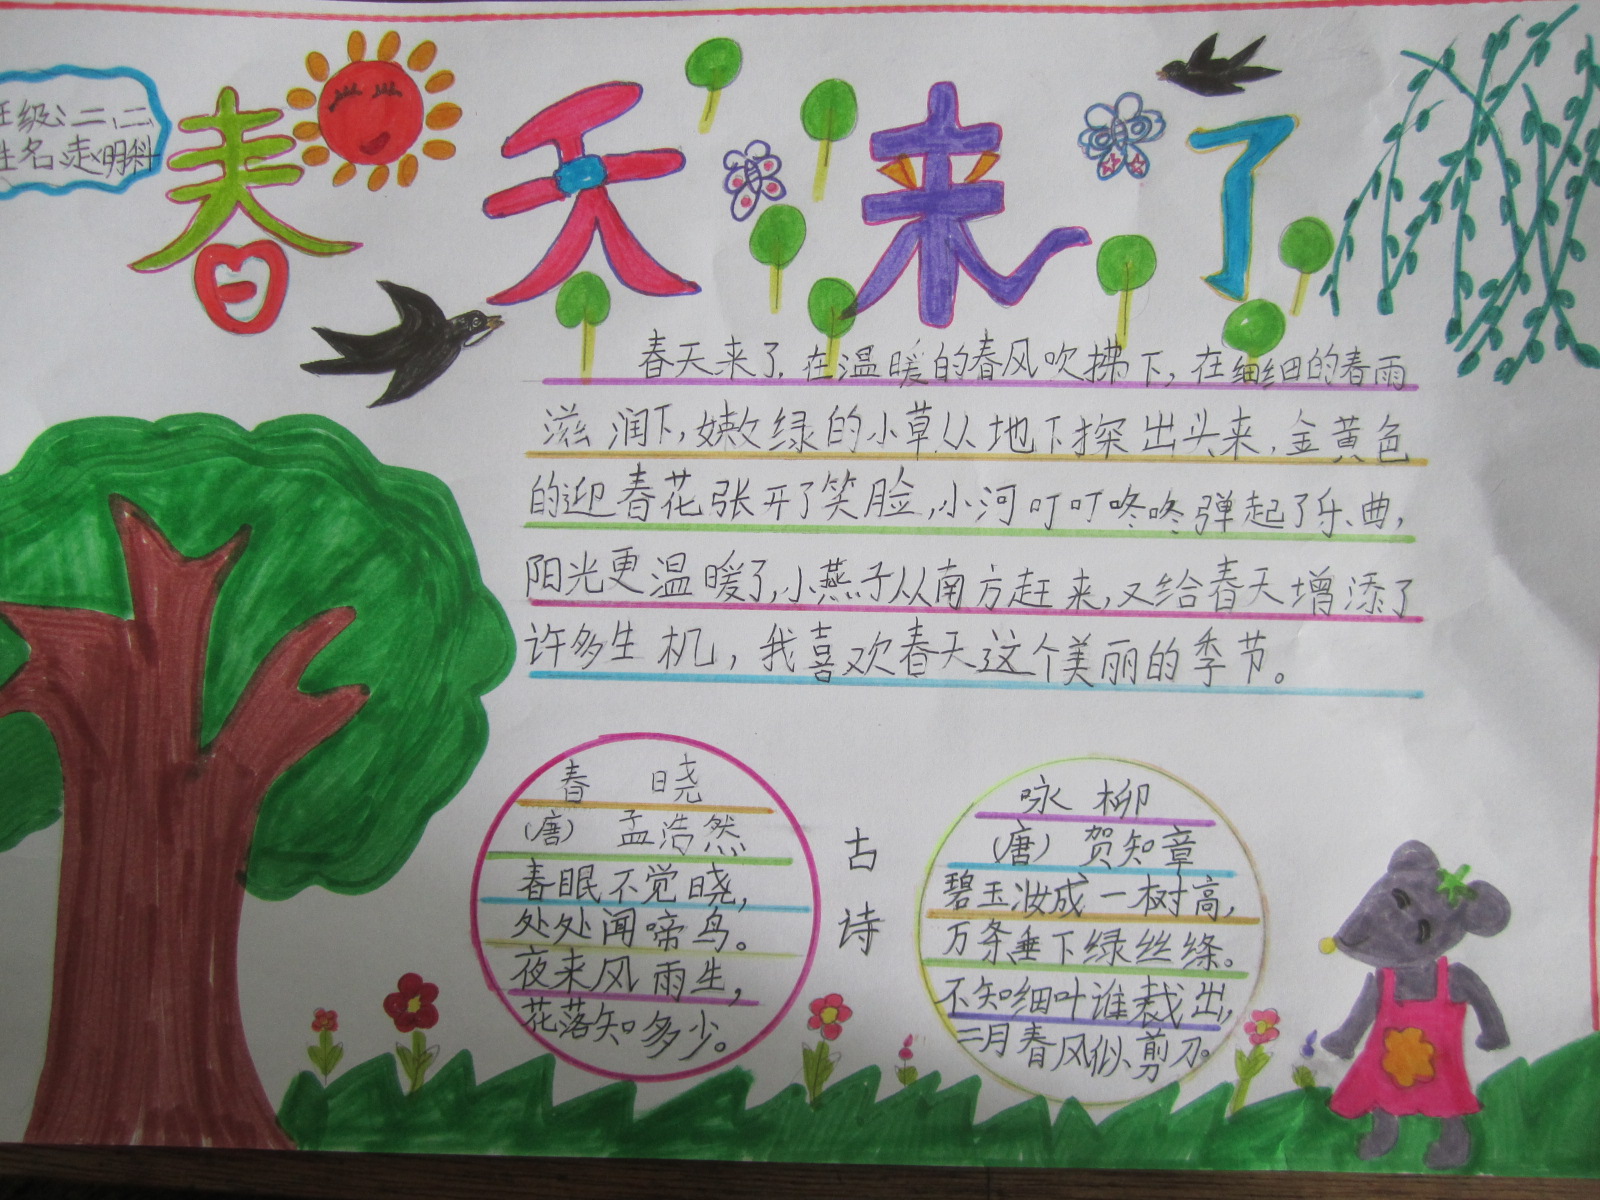 班级:二、二
姓名:赵明科
春天来了
春天来了,在温暖的春风吹拂下,在细细的春雨
滋润下,嫩绿的小草从地下探出头来,金黄色
的迎春花张开了笑脸,小河叮叮咚咚弹起了乐曲,
阳光更温暖了,小燕子从南方赶来,又给春天增添了
许多生机,我喜欢春天这个美丽的季节。
春晓
(唐) 孟浩然
春眠不觉晓,
处处闻啼鸟。
夜来风雨生,
花落知多少。
古诗
咏柳
(唐) 贺知章
碧玉妆成一树高,
万条垂下绿丝绦。
不知细叶谁裁出,
二月春风似剪刀。